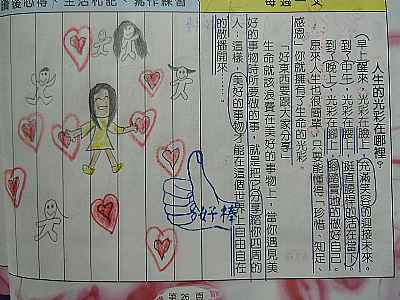 讀後心得、生活札記、寫作練習
每週一文
人生的光彩在哪裡？
早上醒來，光彩在臉上，充滿笑容的迎接未來。
到了中午，光彩在腰上，挺直腰桿的活在當下。
到了晚上，光彩在腳上，腳踏實地的做好自己。
原來人生也很簡單，只要能懂得「珍惜、知足、
感恩」你就擁有了生命的光彩。
「好東西要跟大家分享」
生命就該浪費在美好的事物上，當你遇見美
好的事物時所要做的事，就是把它分享給你四周的
人；這樣，美好的事物才能在這個世界上自由自在
的散播開來……。
好棒
第26頁